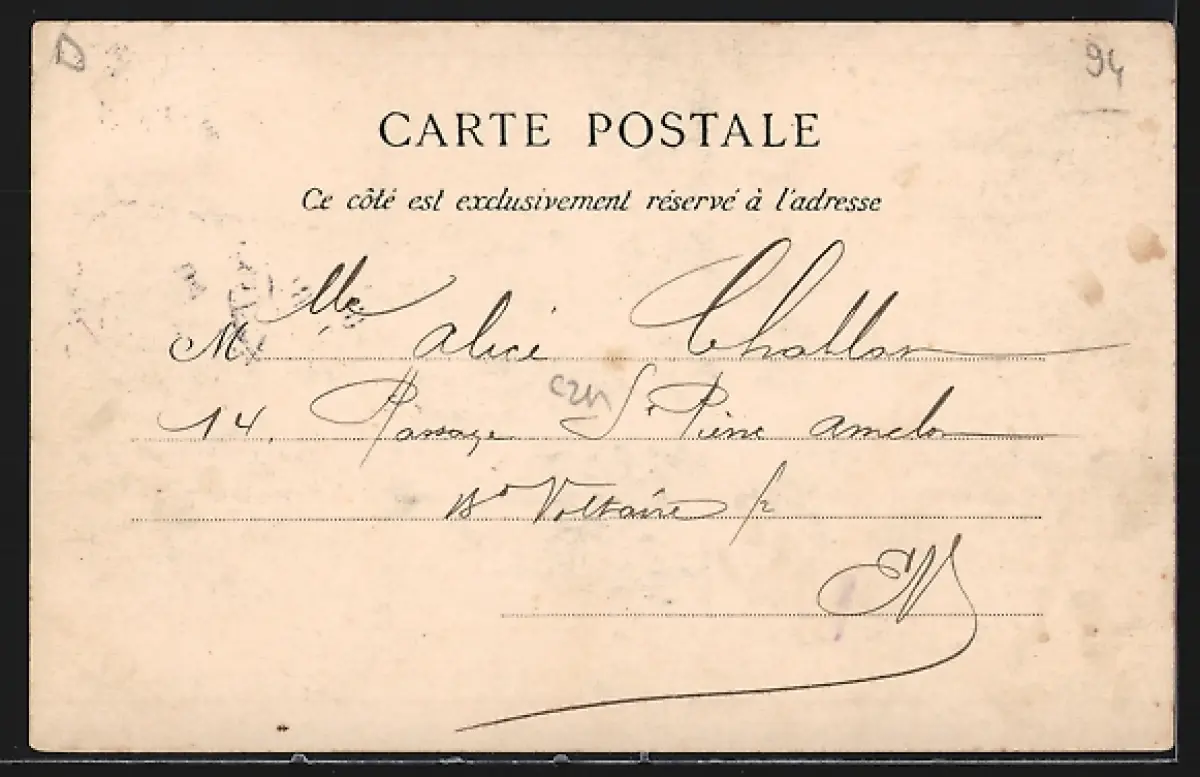 D
94
CARTE POSTALE
Ce côté est exclusivement réservé à l'adresse
Mlle Alice Challan
14, Passage St Pierre Amelot
Bd Voltaire
EV